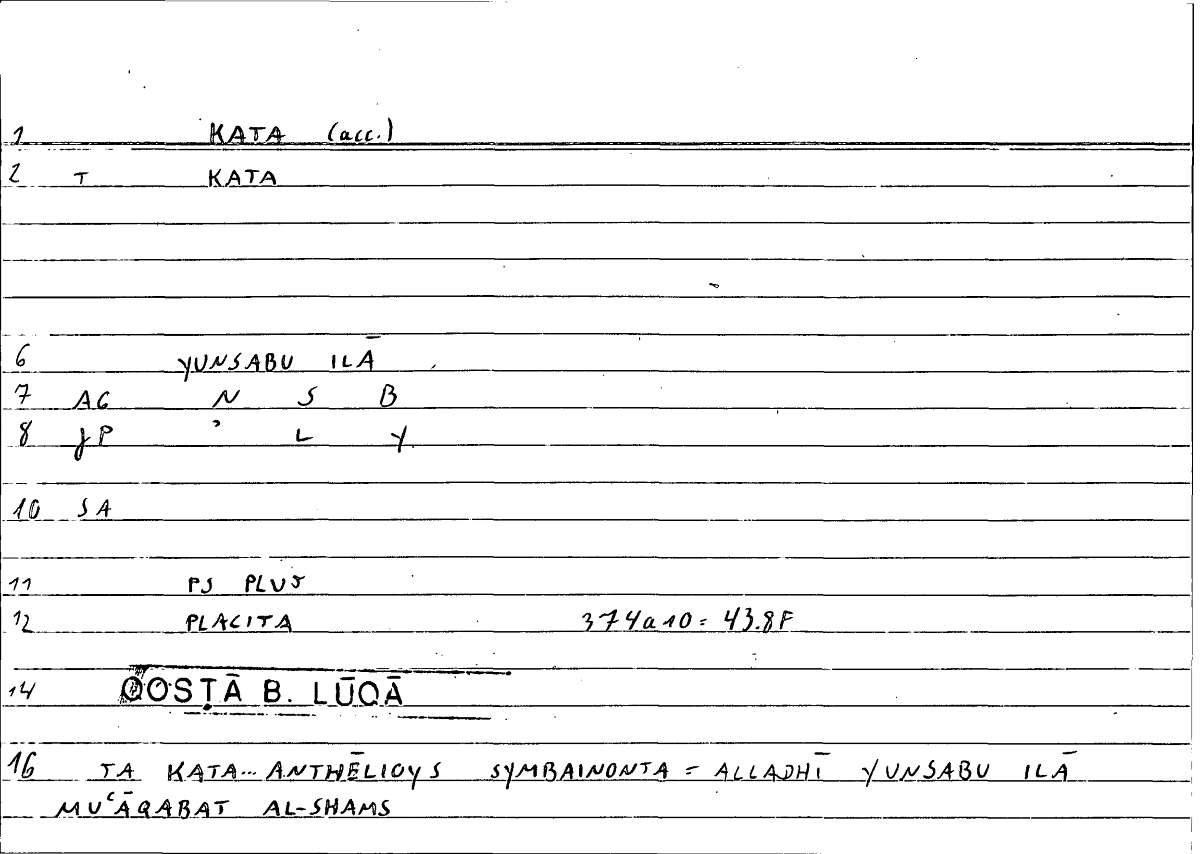 1 KATA (acc.)
2 T KATA
6 YUNSABU ILĀ
7 AG N S B
8 JP ʾ L Y
10 SA
11 PS PLUT
12 PLACITA 374a10 = 43.8F
14 QOSṬĀ B. LŪQĀ
16 TA KATA... ANTHĒLIOYS SYMBAINONTA = ALLADHĪ YUNSABU ILĀ
MUʿĀQABAT AL-SHAMS